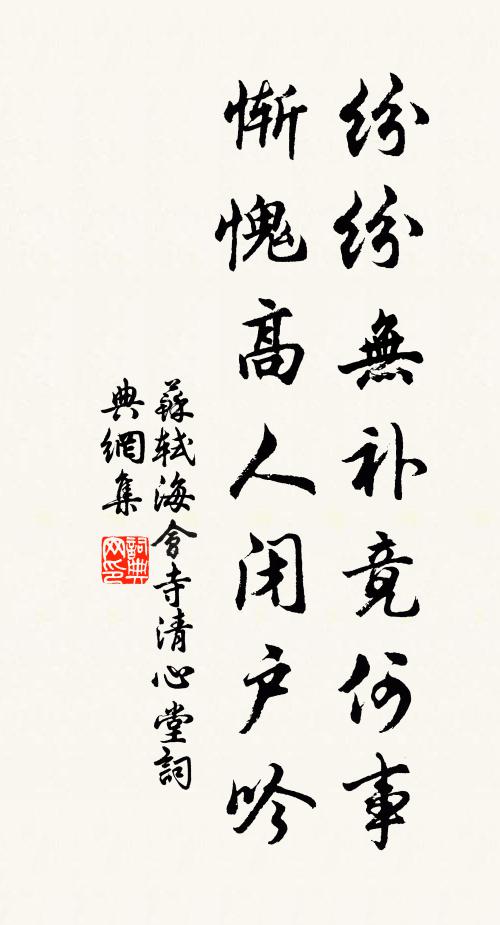 纷纷無补竟何事
惭愧高人闭户吟
蘇軾海會寺清心堂詞
典網集
詞典
网印